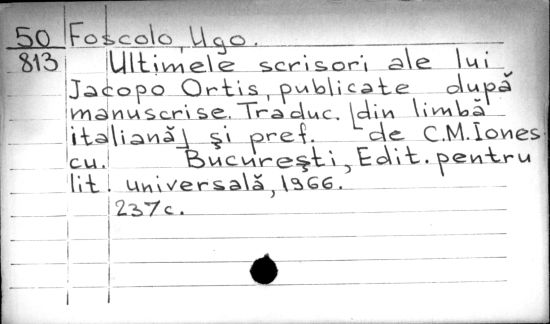 50 Foscolo, Ugo.
813 Ultimele scrisori ale lui
Jacopo Ortis, publicate după
manuscrise. Traduc. [din limbă
italiană] şi pref. de C.M. Iones-
cu. Bucureşti, Edit. pentru
lit. universală, 1966.
237c.